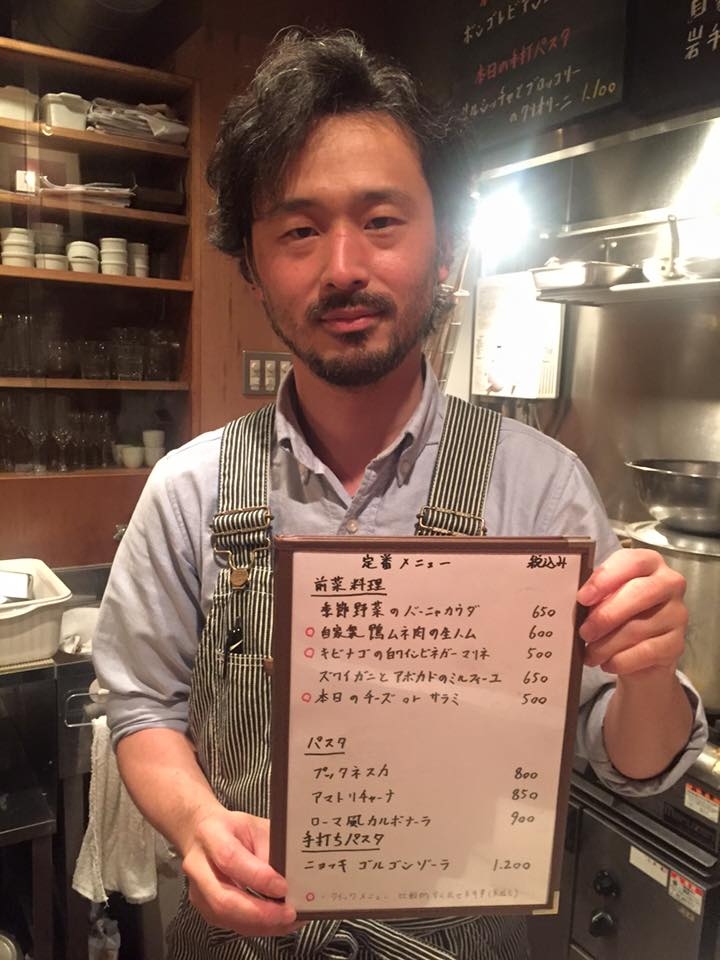 ボンゴレビアンコ
本日の手打パスタ
サルシッチャとブロッコリー
のクリオリーニ 1.100
自
岩
手
定番メニュー 税込み
前菜料理
季節野菜のバーニャカウダ 650
○自家製鴨ムネ肉の生ハム 600
○キビナゴの白ワインビネガーマリネ 500
ズワイガニとアボカドのミルフィーユ 650
○本日のチーズ or サラミ 500
パスタ
プッタネスカ 800
アマトリチャーナ 850
ローマ風カルボナーラ 900
手打ちパスタ
ニョッキ ゴルゴンゾーラ 1.200
○・クイックメニュー